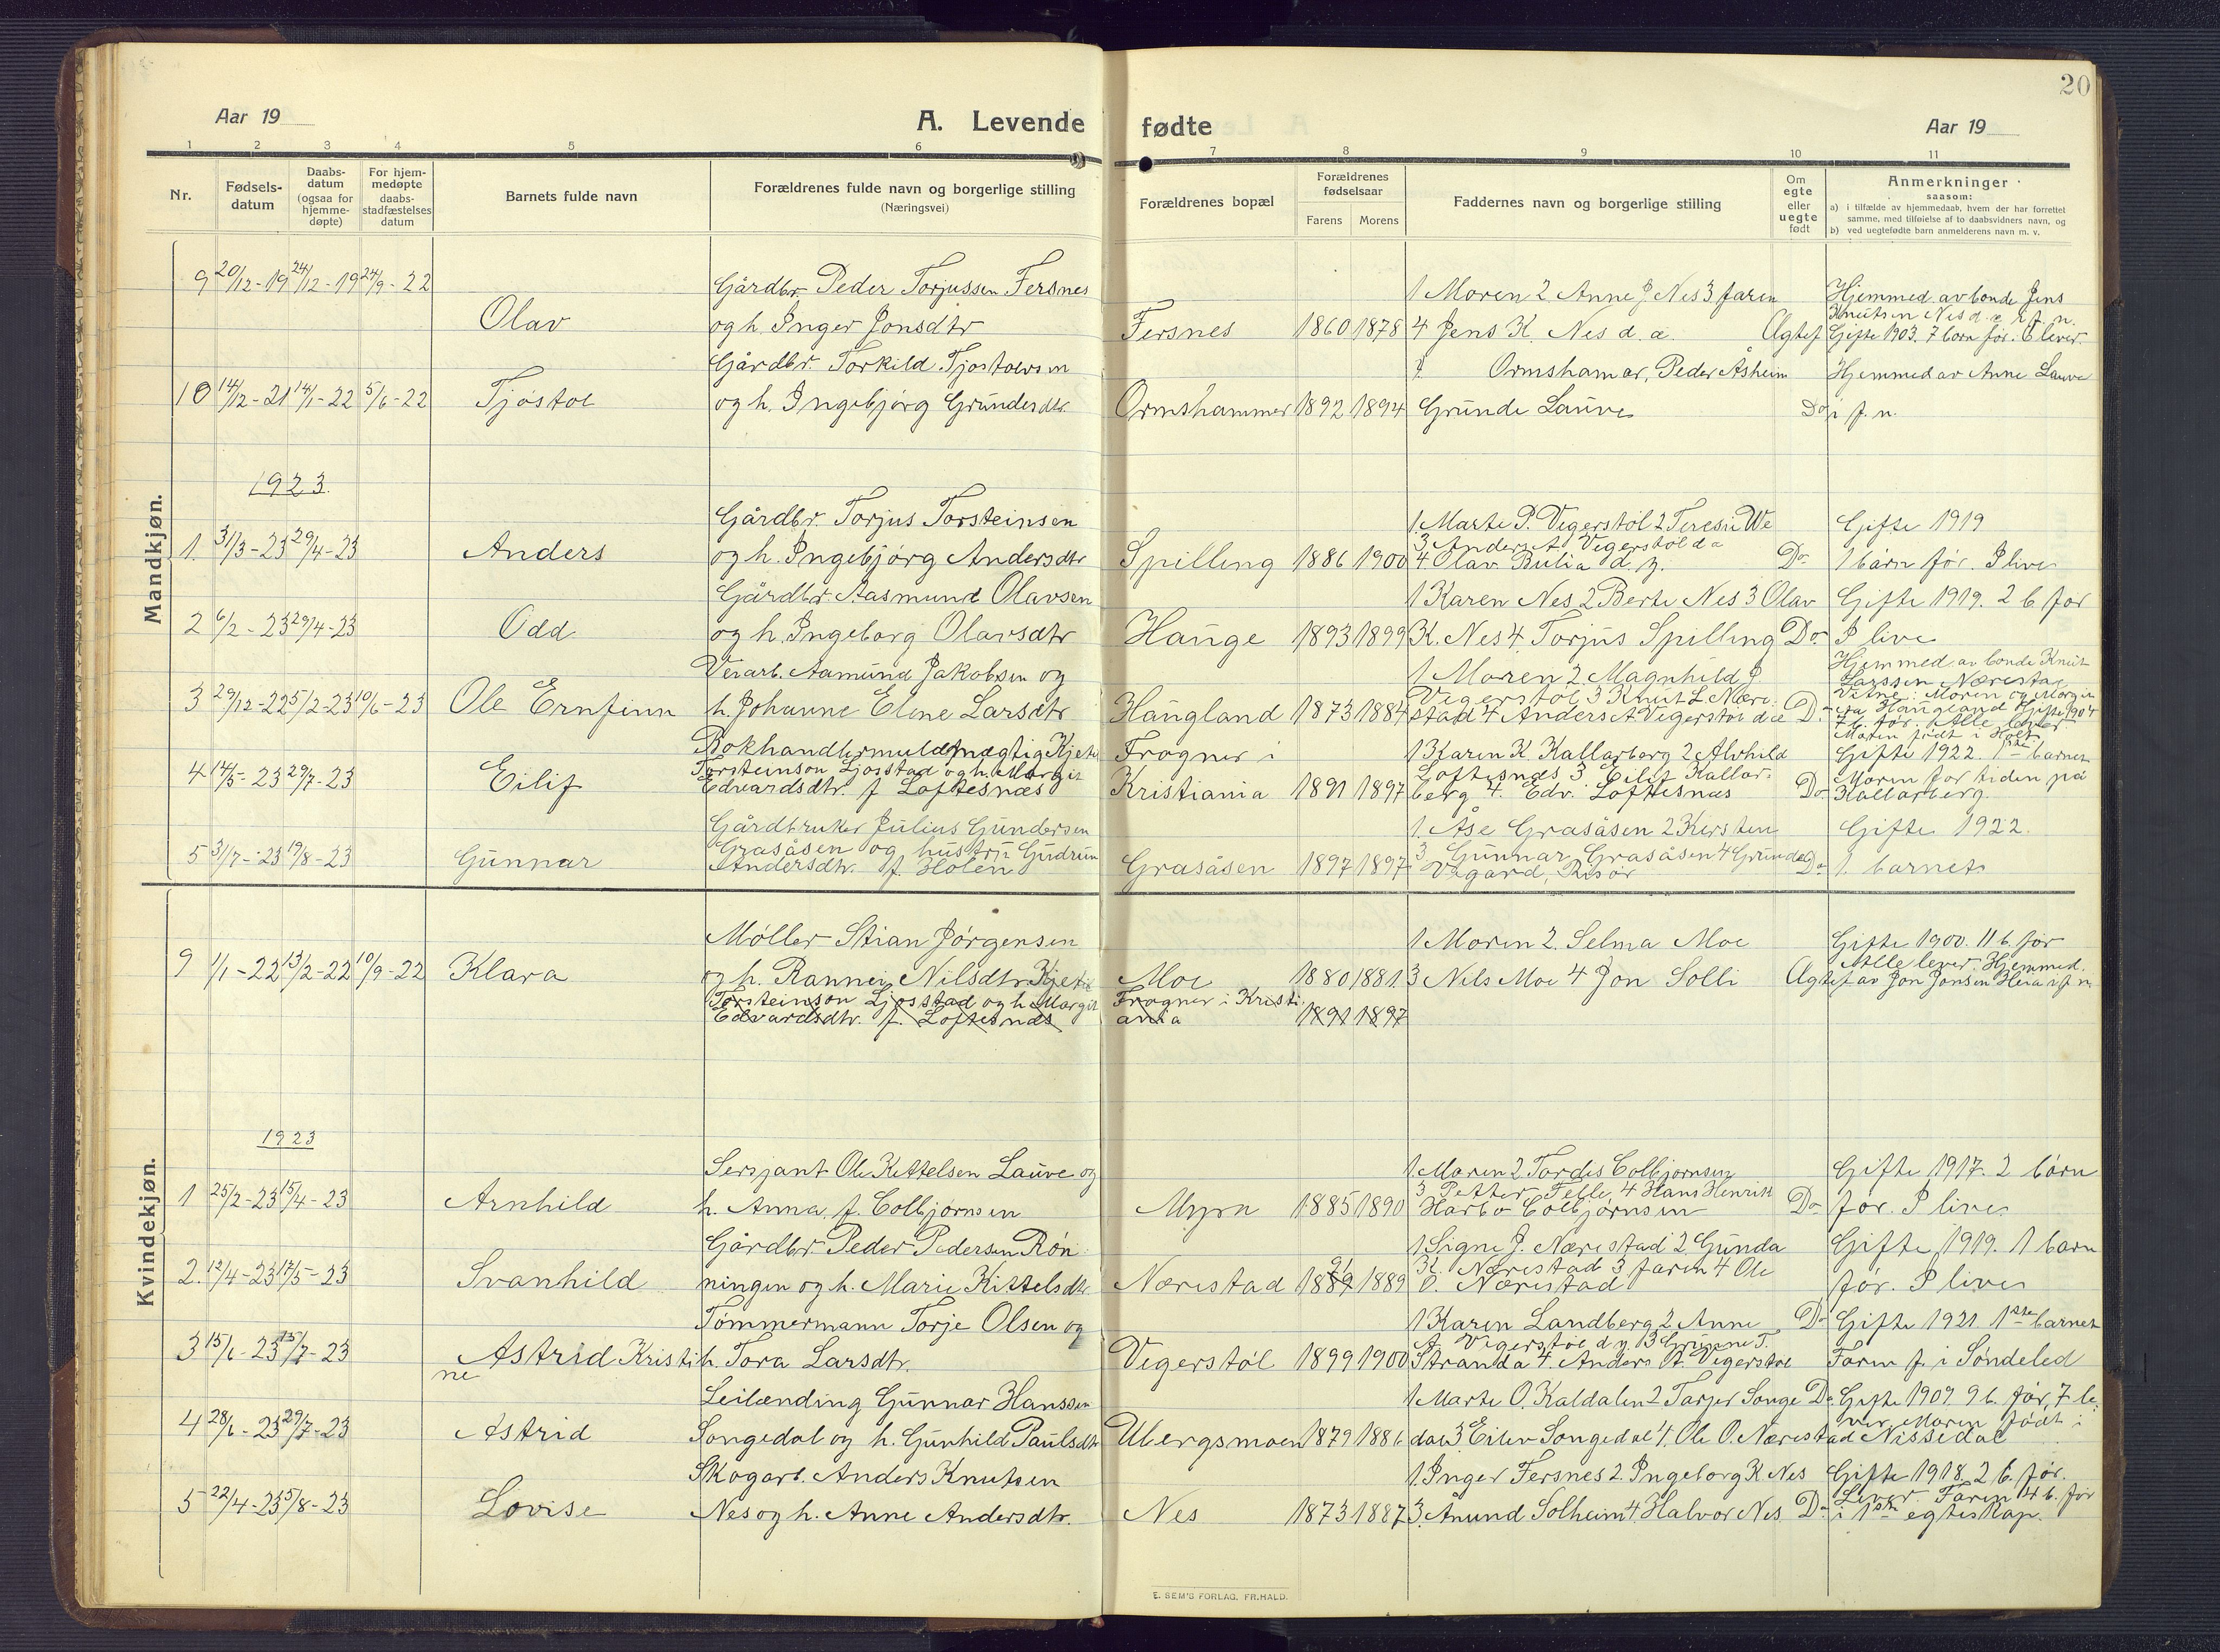 20
Aar 19
A. Levende
fødte
Aar 19
1 2 3 4 5 6 7 8 9 10 11
Nr.
Fødsels-
datum
Daabs-
datum
(ogsaa for
hjemme-
døpte)
For hjem-
medøpte
daabs-
stadfæstelses
datum
Barnets fulde navn
Forældrenes fulde navn og borgerlige stilling
(Næringsvei)
Forældrenes bopæl
Forældrenes
fødselsaar
Farens Morens
Faddernes navn og borgerlige stilling
Om
egte
eller
uegte
født
Anmerkninger
saasom:
a) i tilfælde av hjemmedaab, hvem der har forrettet
samme, med tilføielse af to daabsvidners navn, og
b) ved uegtefødte barn anmelderens navn m. v.
Mandkjøn.
9 20/12-19 24/12-19 24/9-22
Olav
Gårdbr. Peder Torjussen Fersnes
og h. Inger Jonsdtr
Fersnes 1860 1878
1 Moren 2 Anne J Nes 3 faren
4 Jens K. Nes d. æ.
Ægtef
Hjemmed. av bonde Jens
Knutsen Nes d. æ. i f. n.
Gifte 1903. 7 born før. 6 lever
10 14/12-21 14/1-22 5/6-22
Tjøstol
Gårdbr. Torkild Tjostolvsen
og h. Ingebjørg Grundesdtr.
Ormshammer 1892 1894
Ormshamar, Peder Åsheim
Grunde Lauve
Do
Hjemmed av Anne Lauve
i f. n.
1923.
1. 31/3-23 29/4-23
Anders
Gårdbr. Torjus Torsteinsen
og h. Ingebjørg Andersdtr
Spilling 1886 1900
1. Marte P. Vegerstøl 2
3 Anders A Vegerstøl d æ
4 Olav Bulia d. y.
Do
Gifte 1919
1 barn før. I live
2 6/2-23 29/4-23
Odd
Gårdbr. Aasmund Olavsen
og h. Ingeborg Olavsdtr
Hauge 1893 1899
1 Karen Nes 2 Berte Nes 3 Olav
K. Nes 4. Torjus Spilling
Do
Gifte 1919. 2 b. før
I live
3 29/12-22 5/2-23 10/6-23
Ole Ernfinn
Veiarb. Aamund Jakobsen og
h. Johanne Eline Larsdtr.
Haugland 1873 1884
1 Moren 2 Magnhild J
Vegerstøl 3 Knut L Næres-
stad 4 Anders A Vegerstøl d æ
Do
Hjemmed. av bonde Knut
Larssen Nærestad
Vitne: Moren og
Haugland Gifte 1904
7 b. før. Alle lever
Moren født i Holt
4 14/5-23 29/7-23
Eilif
Kjetil
Torsteinson Ljosstad og h. Margit
Edvardsdtr. f Loftesnæs
Frogner i
Kristiania 1891 1897
1 Karen K. Kallarberg 2 Alvhild
Loftesnæs 3 Eilif Kallar-
berg 4. Edv. Loftesnæs
Do
Gifte 1922. 1ste barnet
Moren for tiden på
Kallarberg.
5 31/7-23 19/8-23
Gunnar
Gårdbruker Julius Gundersen
Gråsåsen og hustru Gudrun
Andersdtr. f. Holen
Grasåsen 1897 1897
1. Åse Grasåsen 2 Kirsten
3 Gunnar Grasåsen 4 Grunde
Vågård, Risør
Do
Gifte 1922.
1. barnet
Kvindekjøn.
9 1/1-22 13/2-22 10/9-22
Klara
Møller Stian Jørgensen
og h. Rannei Nilsdtr. Kjetil
Torsteinson Ljosstad og h. Margit
Edvardsdtr. f. Loftesnæs
Moe 1880 1881
Frogner i Kristi-
ania 1891 1897
1 Moren 2. Selma Moe
3 Nils Moe 4 Jon Solli
Ægtef
Gifte 1900. 11 b. før
Alle lever. Hjemmed.
av Jon Jonsen Heia i f n
1923
1 25/2-23 15/4-23
Arnhild
Sersjant Ole Kittelsen Lauve og
h. Anna f. Colbjørnsen
Myra 1885 1890
1. Moren 2 Tordis Colbjørnsen
3 Petter Felle, 4 Hans Henrik
Harbo Colbjørnsen
Do
Gifte 1917. 2 børn
før. I live
2. 12/4-23 17/5-23
Svanhild
Gårdbr. Peder Pedersen Røn-
ningen og h. Marie Kittelsdtr.
Nærestad 1889
1 Signe J. Nærestad 2 Gunda
K. Nærestad 3 faren 4 Ole
O. Nærestad
Gifte 1919. 1 barn
før. I live
3 15/6-23 15/7-23
Astrid Kristi-
ne
Tømmermann Torje Olsen og
h. Tora Larsdtr.
Vegerstøl 1899 1900
1 Karen Landberg 2 Anne
A Vegerstøl d y. 3 T.
Stranda 4. Anders A. Vegerstøl
Do
Gifte 1921. 1ste barnet
Faren f. i Søndeled
4 28/6-23 29/7-23
Astrid
Leilænding Gunnar Hanssen
Songedal og h. Gunhild Paulsdtr
Ubergsmoen 1879 1886
1 Marte O. Kaldalen 2 Tarjer Songe
dal 3. Eilev Songedal 4. Ole O. Nærestad
Do
Gifte 1909. 9 b. før, 7 le-
ver. Moren født i
Nissedal
5 22/4-23 5/8-23
Lovise
Skogarb. Anders Knutsen
Nes og h. Anne Andersdtr.
Nes 1873 1887
1. Inger Fersnes 2. Ingeborg K Nes
3. Ånund Solheim 4. Halvor Nes
Do
Gifte 1918. 2 b. før.
Lever. Faren 4 b. før
i 1ste egteskap.
E. SEM'S FORLAG, FR.HALD.